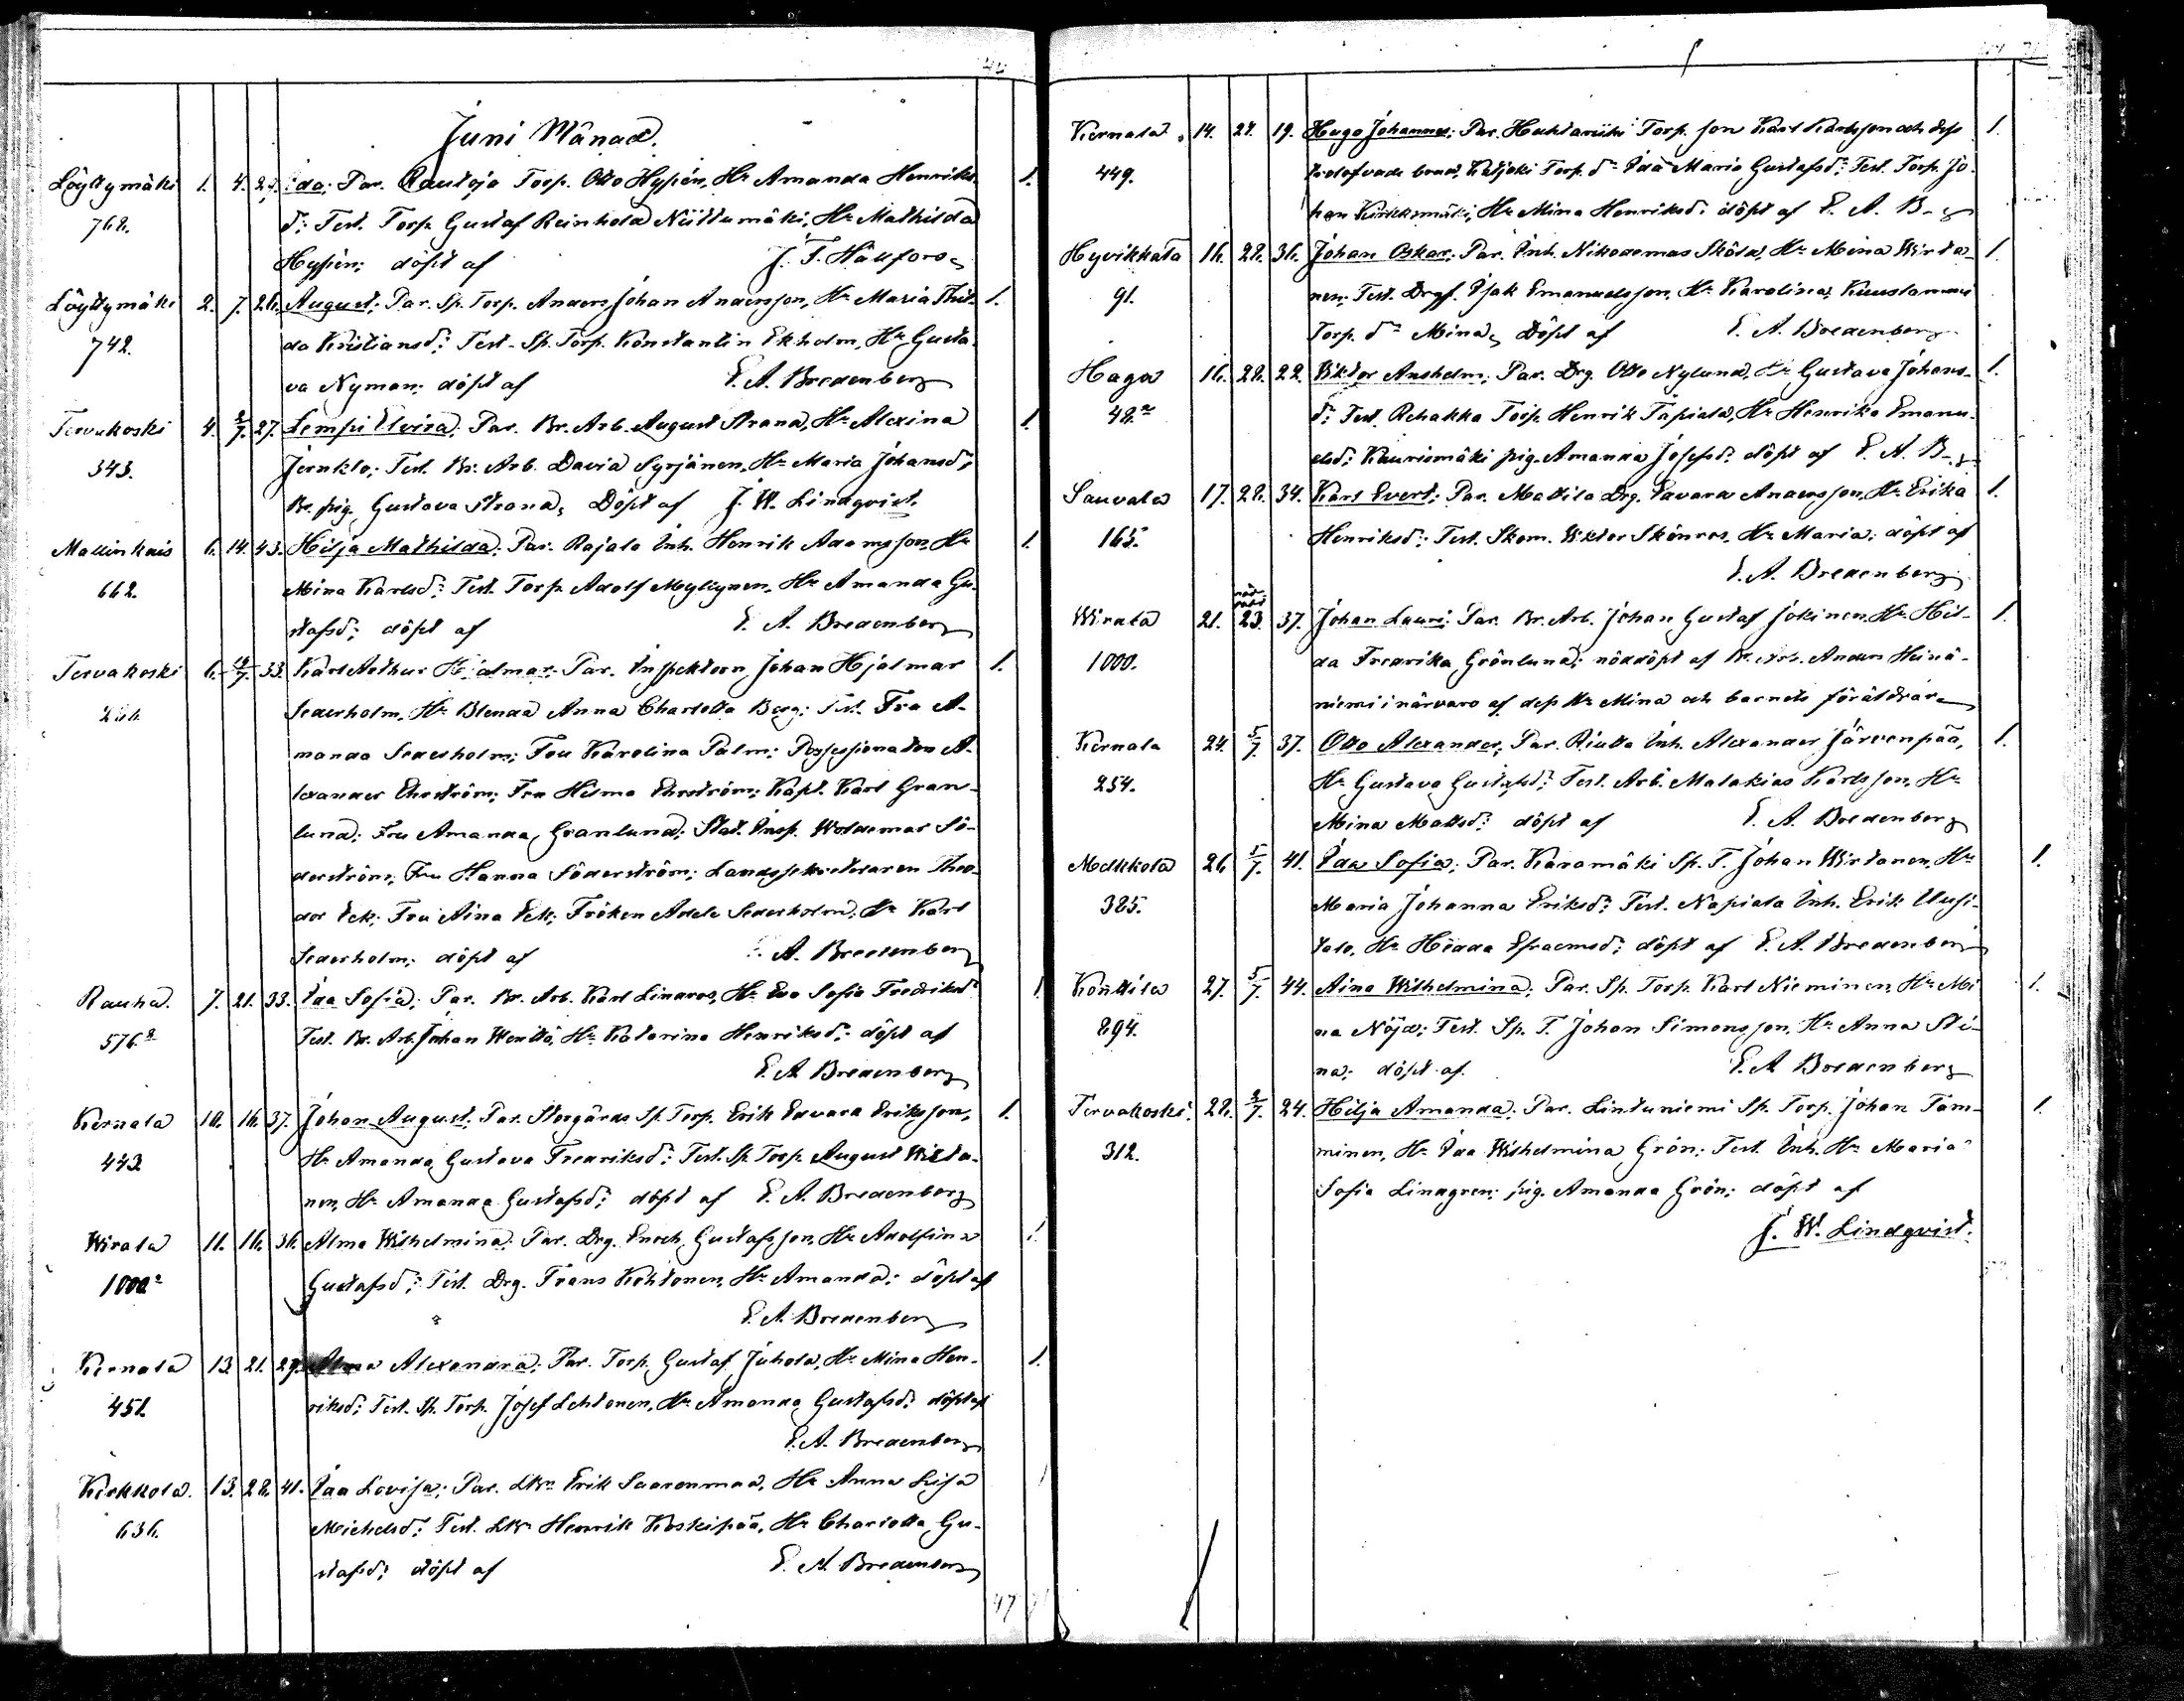 Juni Månad.
Löyttymäki 1. 4. 27. Ida; Par. Rautoja Torp. Otto Hypén, Hu Amanda Henriks- 1.
768. dr; Test. Torp. Gustaf Reinhold Niittumäki, Hu Mathilda
Hypén; döpt af J. T. Hällfors
Löyttymäki 2. 7. 26. August; Par. Sp. Torp. Anders Johan Andersson, Hu Maria Thil- 1.
742. da Kristiansdr; Test. Sp. Torp. Konstantin Ekholm, Hu Gusta-
va Nyman; döpt af E. A. Bredenberg
Tervakoski 4. 27. Lempi Elvira; Par. Br. Arb. August Strand, Hu Alexina 1.
343. Test. Br. Arb. David Syrjänen, Hu Maria Johansdr,
Br. pig. Gustava Strand, Döpt af J. W. Lindqvist.
Mallinkais 6. 14. 43. Hilja Mathilda; Par. Rajala Inh. Henrik Adamsson, Hu 1.
662. Mina Karlsdr; Test. Torp. Adolf Myllynen, Hu Amanda Gu-
stafsdr; döpt af E. A. Bredenberg
Tervakoski 6. 33. Karl Arthur Hjalmar; Par. Inspektorn Johan Hjalmar 1.
Sederholm, Hu Blenda Anna Charlotta Berg; Test. Fru A-
manda Sederholm; Fru Karolina Palm; Possessionaten A-
lexander Ehrström; Fru Hilma Ehrström; Kapt. Karl Gran-
lund; Fru Amanda Granlund; Stat. Insp. Woldemar Sö-
derström; Fru Hanna Söderström; Landssekreteraren Theo-
dor Eek; Fru Aina Eek; Fröken Adele Sederholm, Hr Karl
Sederholm; döpt af E. A. Bredenberg
Rauha. 7. 21. 33. Ida Sofia; Par. Br. Arb. Karl Linaros, Hu Eva Sofia Fredriksdr 1.
576. Test. Br. Arb. Johan Henrikdr; döpt af
E. A. Bredenberg
Kernala 10. 16. 37. Johan August; Par. Storgårds Sp. Torp. Erik Edvard Eriksson, 1.
443 Hu Amanda Gustava Fredriksdr; Test. Sp. Torp. August Wirta-
nen, Hu Amanda Gustafsdr; döpt af E. A. Bredenberg
Wirala 11. 16. 36. Alma Wilhelmina; Par. Drg. Enoch Gustafsson, Hu Adolfina 1.
1000 Gustafsdr; Test. Drg. Frans Kohtonen, Hu Amanda; döpt af
E. A. Bredenberg
Kernala 13. 21. 29. Alma Alexandra; Par. Torp. Gustaf Juhola, Hu Mina Hen- 1.
451. riksdr; Test. Sp. Torp. Josef Lehtonen, Hu Amanda Gustafsdr; döpt af
E. A. Bredenberg
Kirkkola. 13. 28. 41. Ida Lovisa; Par. Erik Saarenmaa, Hu Anna Lisa
636. Michelsdr; Test. Henrik Koskipää, Hu Charlotta Gu-
stafsdr; döpt af E. A. Bredenberg
47
Kernala 14. 27. 19. Hugo Johannes; Par. Torp. son Karl Karlsson och dess 1.
449. trolofvade brud, Torp. dr Ida Maria Gustafsdr; Test. Torp. Jo-
han Hu Mina Henriksdr; döpt af E. A. B-g
Hyvikkälä 16. 28. 36. Johan Oskar; Par. Inh. Nikodemus Sköld, Hu Mina Wirta- 1.
91. nen; Test. Isak Emanuelsson, Hu Karolina,
Torp. dr Mina, Döpt af E. A. Bredenberg
Haga 16. 28. 22. Viktor Anshelm; Par. Drg. Otto Nylund, Hu Gustava Johans- 1.
48 dr; Test. Rehakka Torp. Henrik Tapiala, Hu Henrika Emanu-
elsdr; Kaurismäki pig. Amanda Josefsdr; döpt af E. A. B-g
Sauvala 17. 28. 34. Karl Evert; Par. Mattila Drg. Edvard Andersson, Hu Erika 1.
165. Henriksdr; Test. Skom. Viktor Skönros, Hu Maria; döpt af
E. A. Bredenberg
Wirala 21. 23. 37. Johan Lauri; Par. Br. Arb. Johan Gustaf Jokinen, Hu Hil- 1.
1000. da Fredrika Grönlund; nöddöpt af Br. Arb. Anders Heinä-
niemi i närvaro af dess Hu Mina och barnets föräldrar
Kernala 24. 5/7. 37. Otto Alexander; Par. Riutta Inh. Alexander Järvenpää, 1.
254. Hu Gustava Gustafsdr; Test. Arb. Malakias Karlsson, Hu
Mina Mattsdr; döpt af E. A. Bredenberg
Melkkola 26 5/7. 41. Ida Sofia; Par. Karamäki Sp. T. Johan Wirtanen, Hu 1.
385. Maria Johanna Eriksdr; Test. Napiala Inh. Erik Uusi-
talo, Hu Hedda Efraemsdr; döpt af E. A. Bredenberg
Konttila 27. 5/7. 44. Aina Wilhelmina; Par. Sp. Torp. Karl Nieminen, Hu Mi- 1.
894. na Nöjd; Test. Sp. T. Johan Simonsson, Hu Anna Sti-
na; döpt af E. A. Bredenberg
Tervakoski. 28. 24. Hilja Amanda; Par. Lintuniemi Sp. Torp. Johan Tam- 1.
312. minen, Hu Ida Wilhelmina Grön; Test. Inh. Hu Maria
Sofia Lindgren; pig. Amanda Grön; döpt af
J. W. Lindqvist.